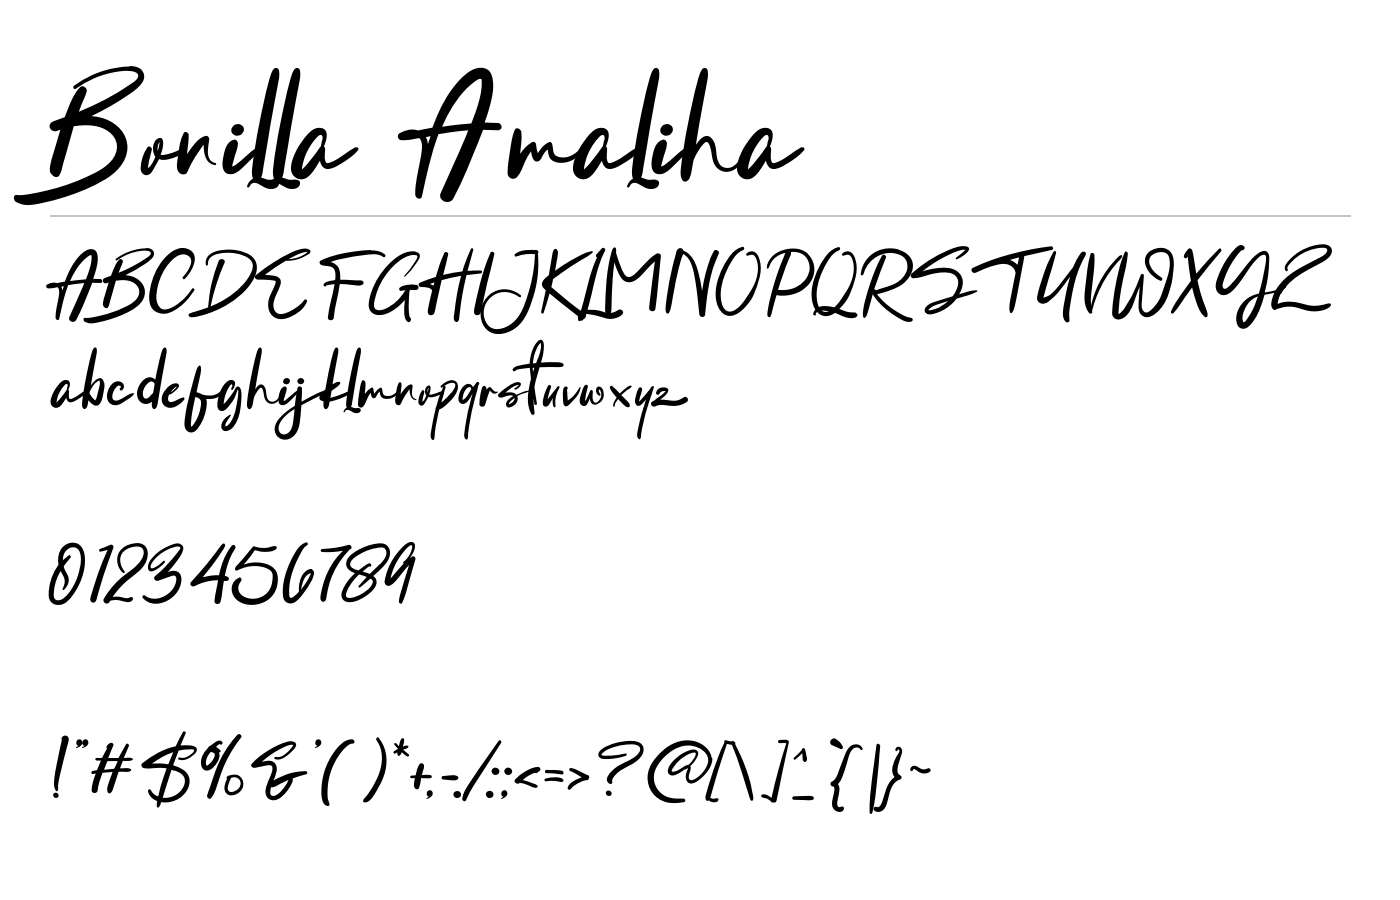 Bonilla Amaliha
ABCDEFGHIJKLMNOPQRSTUVWXYZ
abcdefghijklmnopqrstuvwxyz
0123456789
!"#$%&'()*+,-./:;<=>?@[\]^_`{|}~